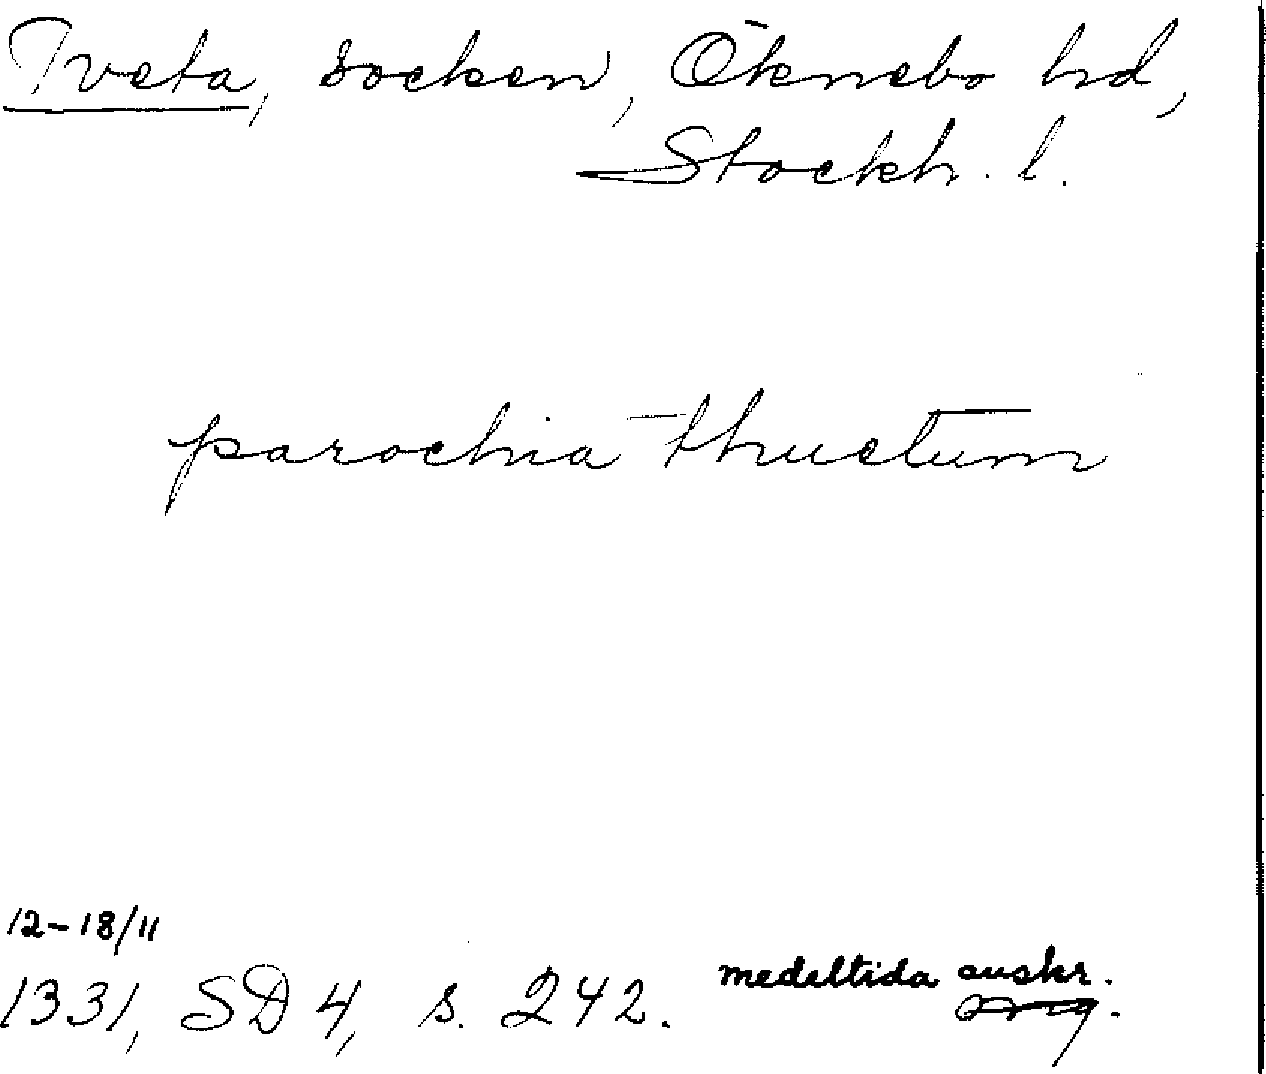 Tveta, socken, Öknebo hd,
Stockh. l.
parochia thuetum
12-18/11
1331, SD 4, s. 242. medeltida avskr.
orig.